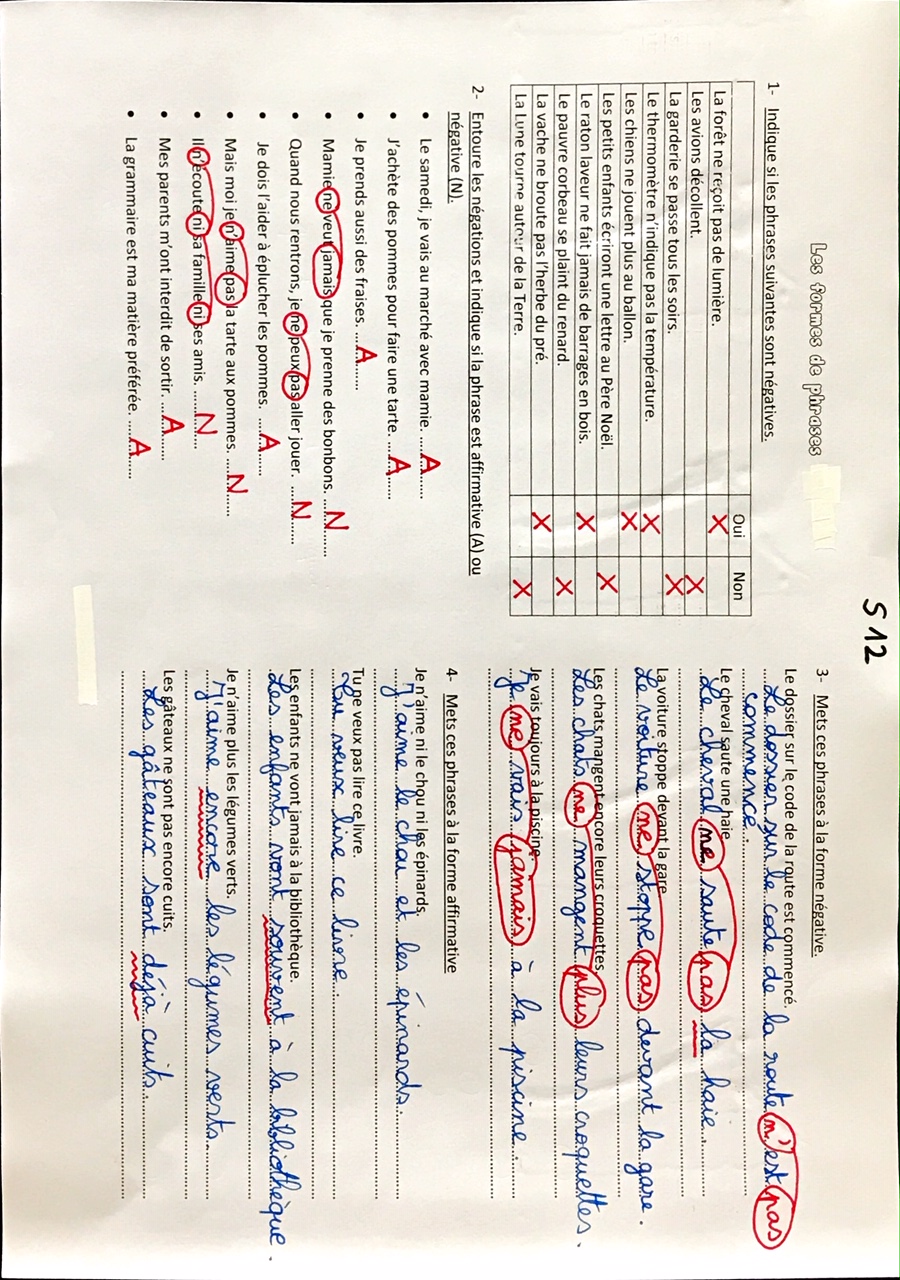 S 12
Les formes de phrases
1- Indique si les phrases suivantes sont négatives.
Oui Non
La forêt ne reçoit pas de lumière. X
Les avions décollent. X
La garderie se passe tous les soirs. X
Le thermomètre n'indique pas la température. X
Les chiens ne jouent plus au ballon. X
Les petits enfants écriront une lettre au Père Noël. X
Le raton laveur ne fait jamais de barrages en bois. X
Le pauvre corbeau se plaint du renard. X
La vache ne broute pas l'herbe du pré. X
La Lune tourne autour de la Terre. X
2- Entoure les négations et indique si la phrase est affirmative (A) ou
négative (N).
• Le samedi, je vais au marché avec mamie. ....A......
• J'achète des pommes pour faire une tarte. ....A......
• Je prends aussi des fraises. ....A......
• Mamie ne veut jamais que je prenne des bonbons. ....N......
• Quand nous rentrons, je ne peux pas aller jouer. ....N......
• Je dois l'aider à éplucher les pommes. ....A......
• Mais moi je n'aime pas la tarte aux pommes. ....N......
• Il n'écoute ni sa famille ni ses amis. ....N......
• Mes parents m'ont interdit de sortir. ....A......
• La grammaire est ma matière préférée. ....A......
3- Mets ces phrases à la forme négative.
Le dossier sur le code de la route est commencé.
Le dossier sur le code de la route n'est pas
commencé.
Le cheval saute une haie.
Le cheval ne saute pas la haie.
La voiture stoppe devant la gare.
Le voiture ne stoppe pas devant la gare.
Les chats mangent encore leurs croquettes.
Les chats ne mangent plus leurs croquettes.
Je vais toujours à la piscine.
Je ne vais jamais à la piscine.
4- Mets ces phrases à la forme affirmative
Je n'aime ni le chou ni les épinards.
J'aime le chou et les épinards.
Tu ne veux pas lire ce livre.
Tu veux lire ce livre.
Les enfants ne vont jamais à la bibliothèque.
Les enfants vont souvent à la bibliothèque.
Je n'aime plus les légumes verts.
J'aime encore les légumes verts.
Les gâteaux ne sont pas encore cuits.
Les gâteaux sont déjà cuits.